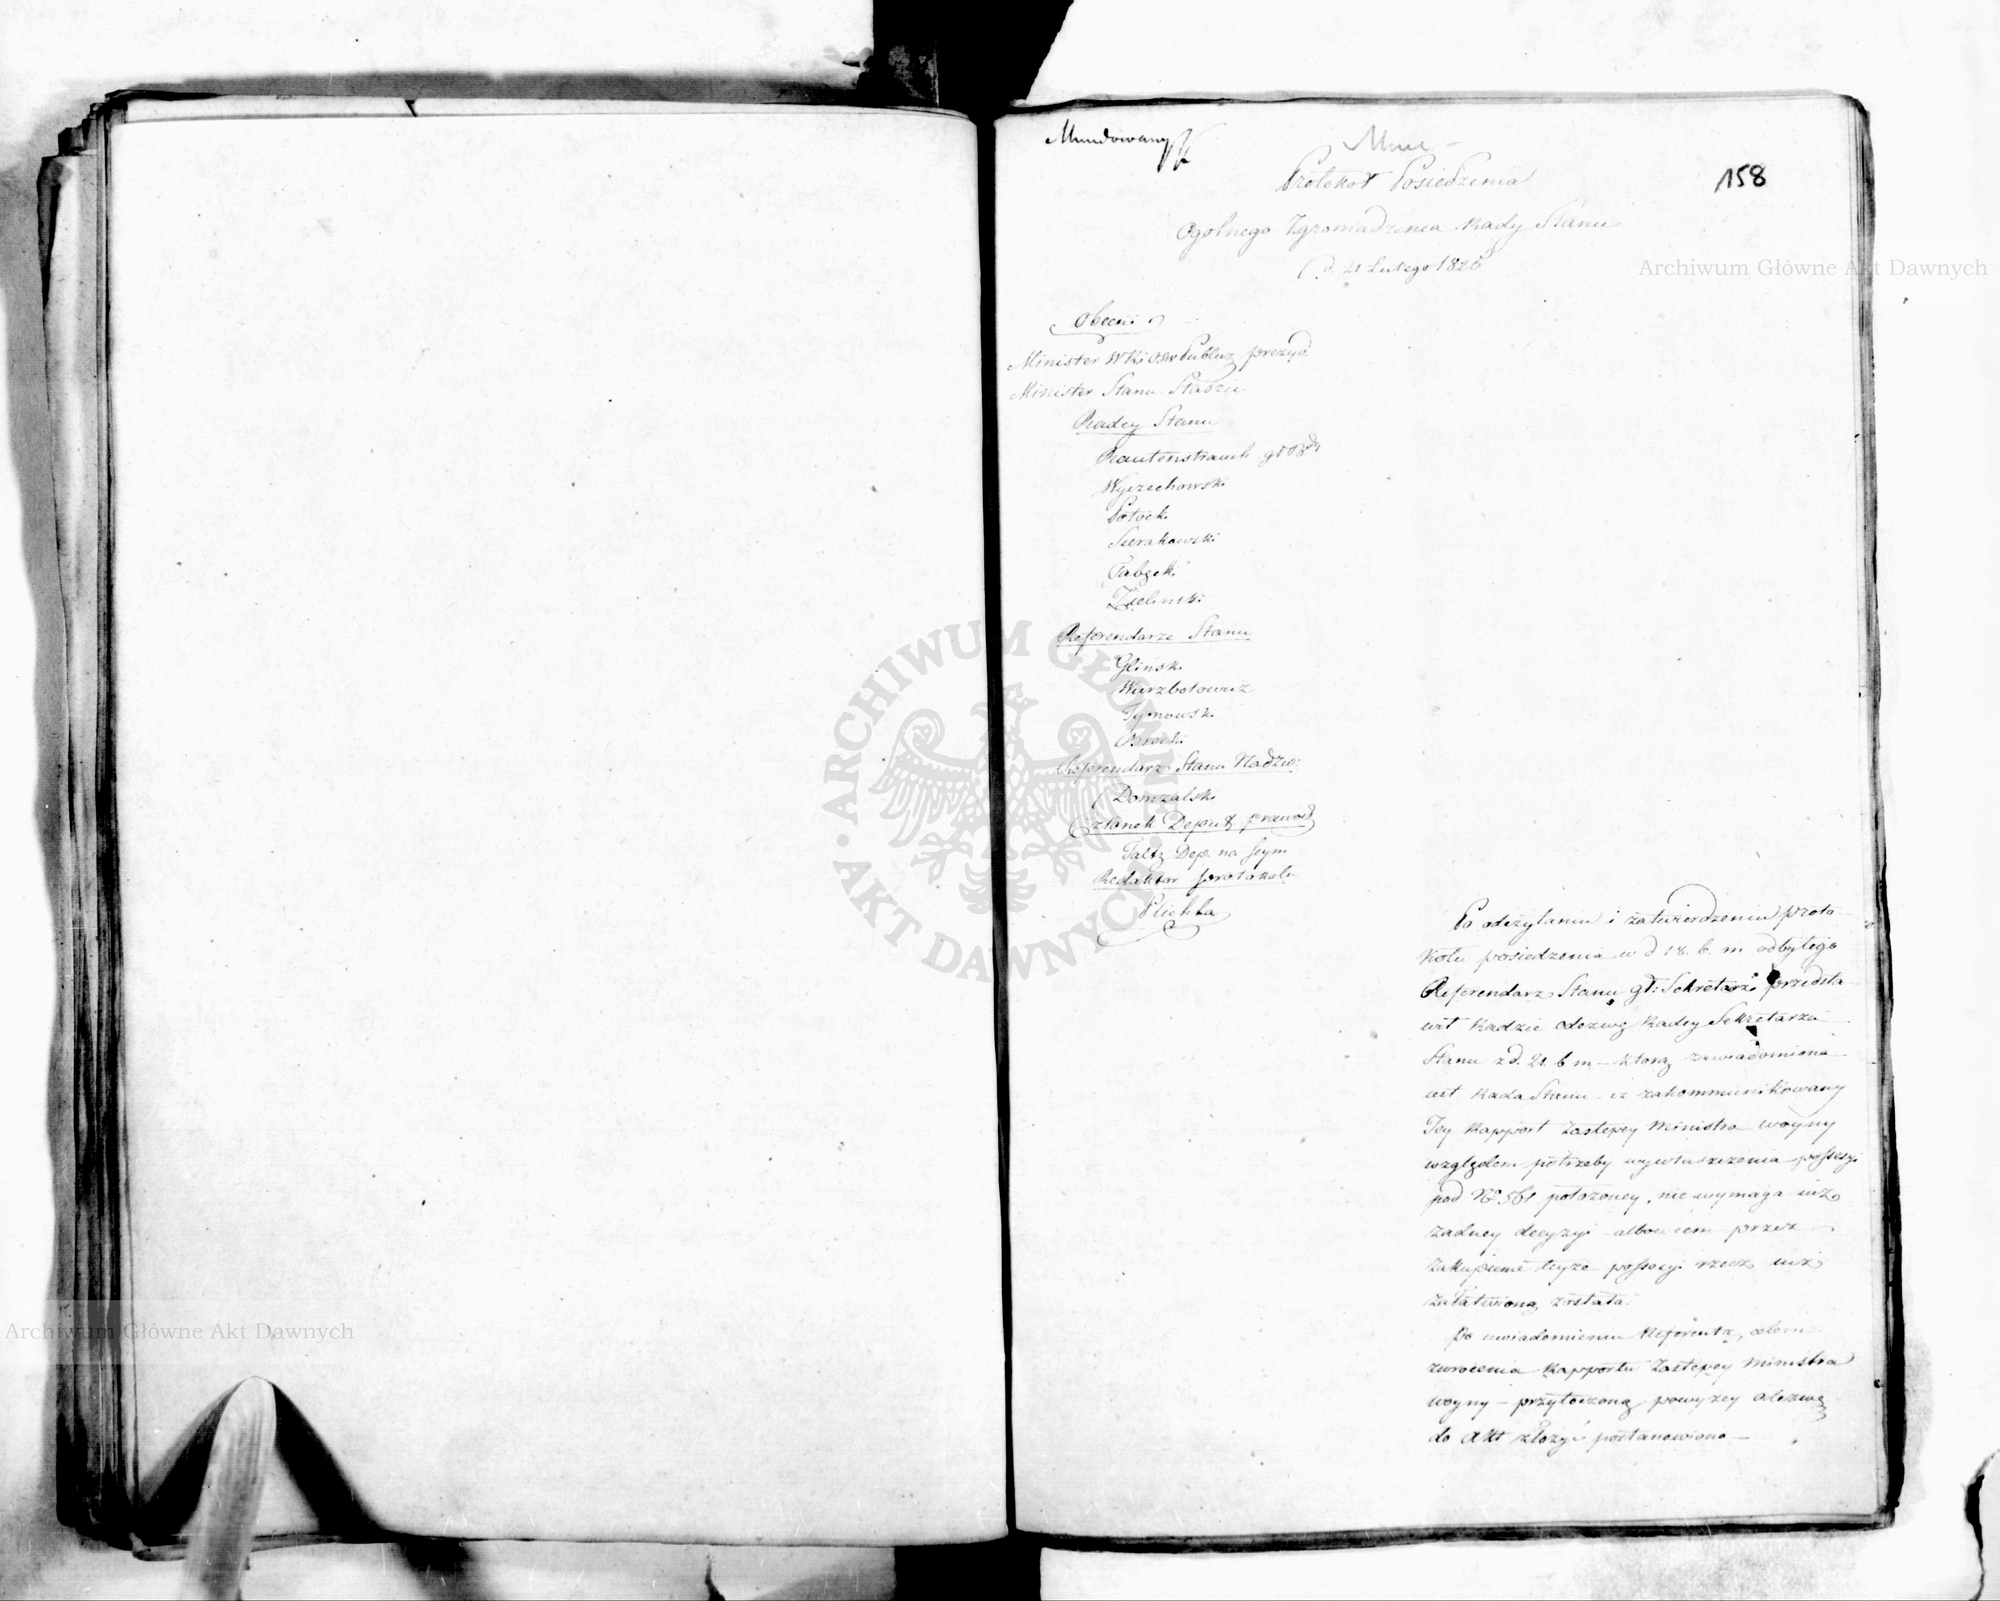 Mundowany
158
Protokół Posiedzenia
Ogolnego Zgromadzenia Rady Stanu
d. 21 Lutego 1825
Archiwum Główne Akt Dawnych
Obecni
Minister WR i Osw Publicz prezyd.
Minister Stanu Staszic
Radcy Stanu
Rautenstrauch
Wyczechowski
Potocki
Sierakowski
Tabęcki
Zielinski
Referendarze Stanu
Gliński
Wierzbołowicz
Tymowski
Brocki
Referendarz Stanu Nadzw:
Domzalski
Członek Deput prawod
Faltz Dep. na Seym
Redaktor protokołu
Plichta
ARCHIWUM GŁÓWNE AKT DAWNYCH
Po odczytaniu i zatwierdzeniu proto-
kołu posiedzenia w d 18. b. m odbytego
Referendarz Stanu gł: Sekretarz przedsta-
wił Radzie odezwę Radcy Sekretarza
Stanu z d. 21. b m – którą zawiadomiona
iest Rada Stanu – iż zakommunikowany
Jey Rapport Zastępcy Ministra woyny
względem potrzeby wywłaszczenia possesyi
pod No 561 położoney, nie wymaga iuż
żadney decyzyi – albowiem przez
zakupienie teyże possesyi rzecz iuż
załatwioną została.
Po uwiadomieniu Referenta, celem
zwrócenia Rapportu Zastępcy Ministra
woyny – przytoczoną powyżey odezwę
do Akt złożyć postanowiono –
Archiwum Główne Akt Dawnych